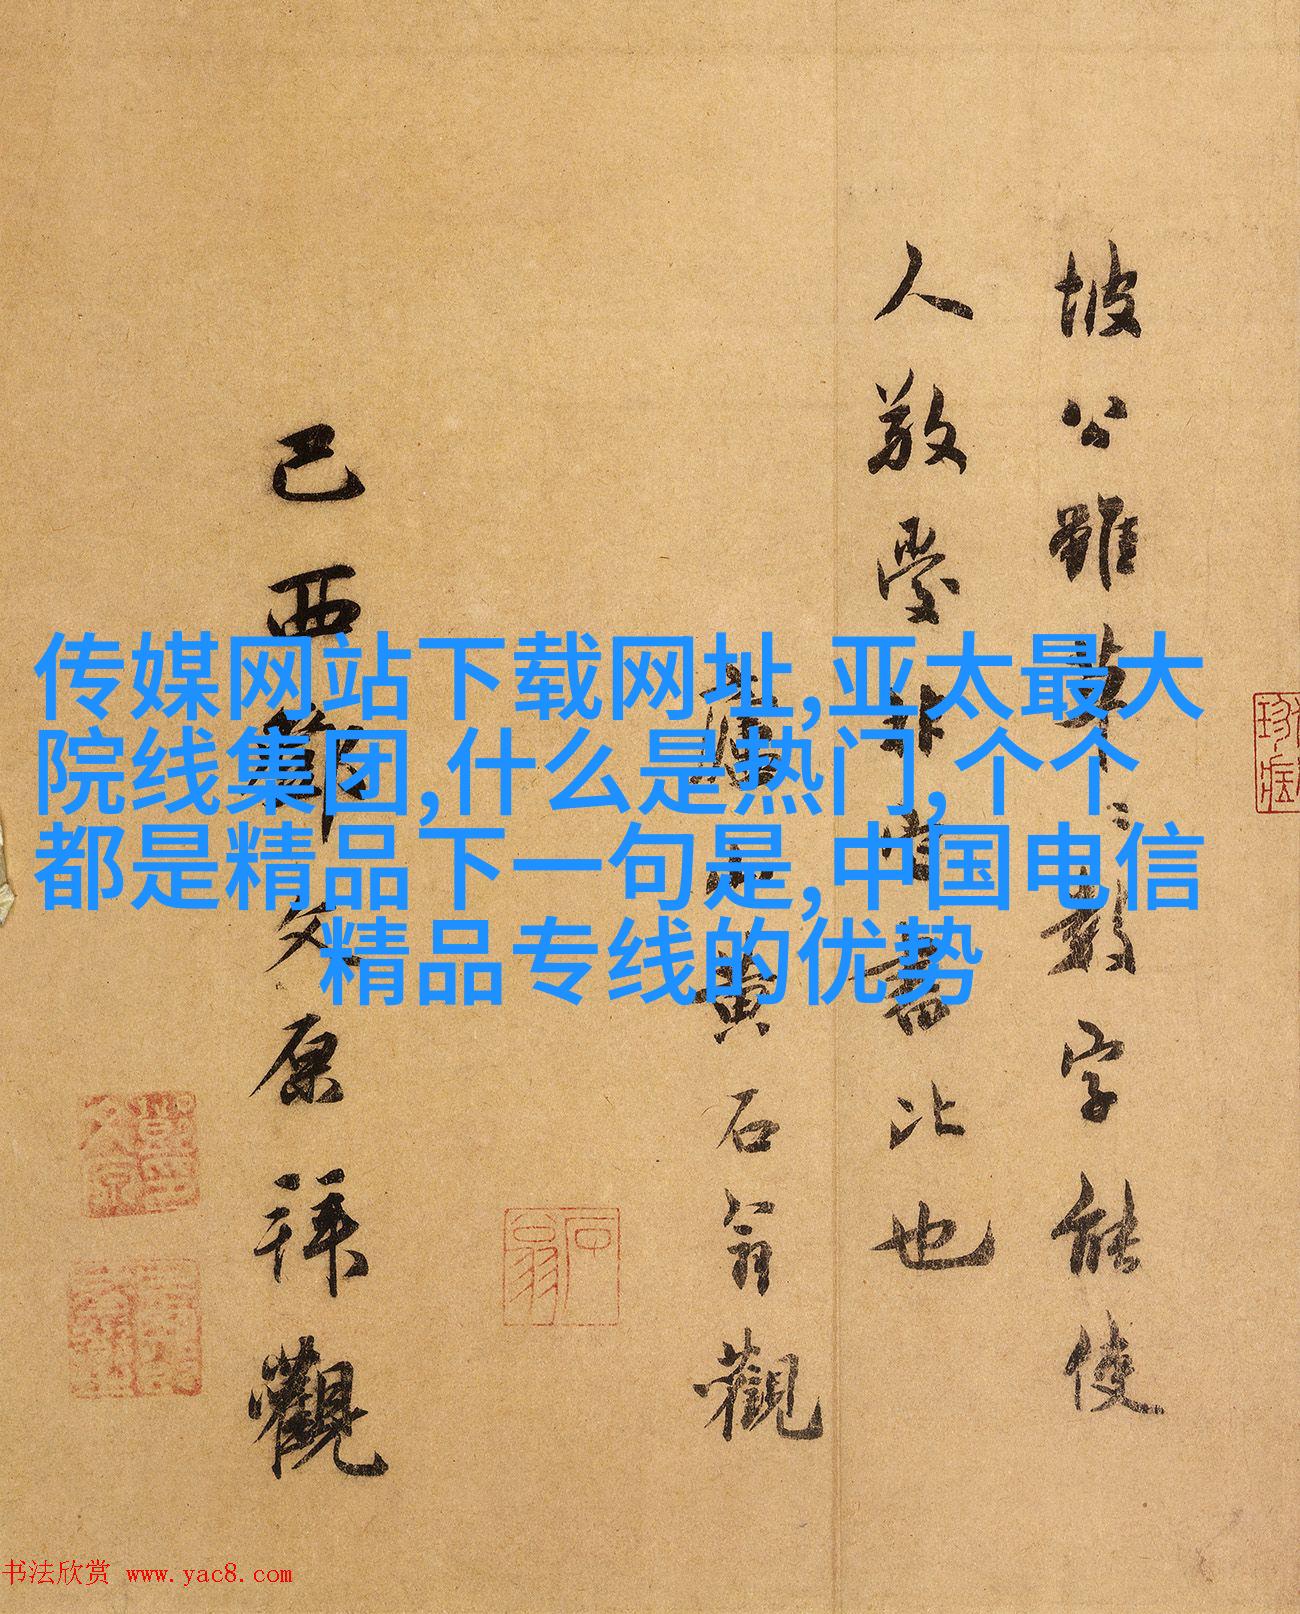 传媒网站下载网址,亚太最大
院线集团,什么是热门,个个
都是精品下一句是,中国电信
精品专线的优势
坡公雖草〻數字能使
人敬愛非時書比也
黃石翁觀
己酉鄭文原拜觀
石翁
书法欣赏 www.yac8.com